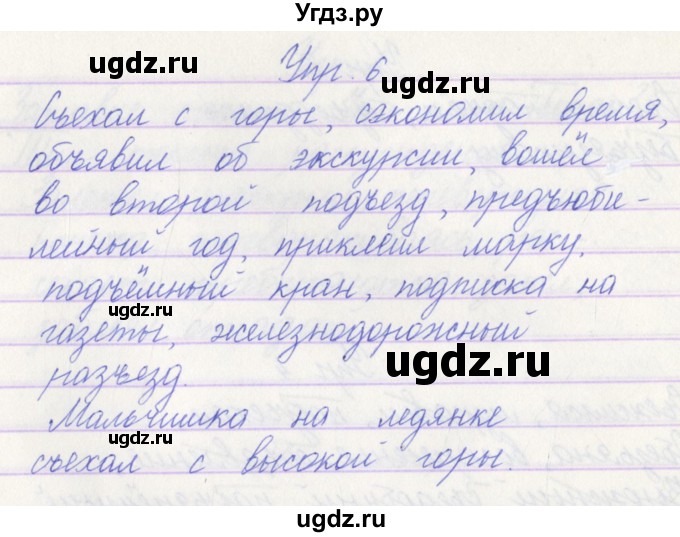 Угдз.ру
ugdz.ru
Упр. 6
ugdz.ru
Съехал с горы, сэкономил время,
объявил об экскурсии, вошёл
ugdz.ru
ugdz.ru
во второй подъезд, предъюби-
лейный год, приклеил марку,
подъёмный кран, подписка на
ugdz.ru
газеты, железнодорожный
ugdz.ru
разъезд.
Мальчишка на ледянке
ugdz.ru
съехал с высокой горы.
ugdz.ru
ugdz.ru